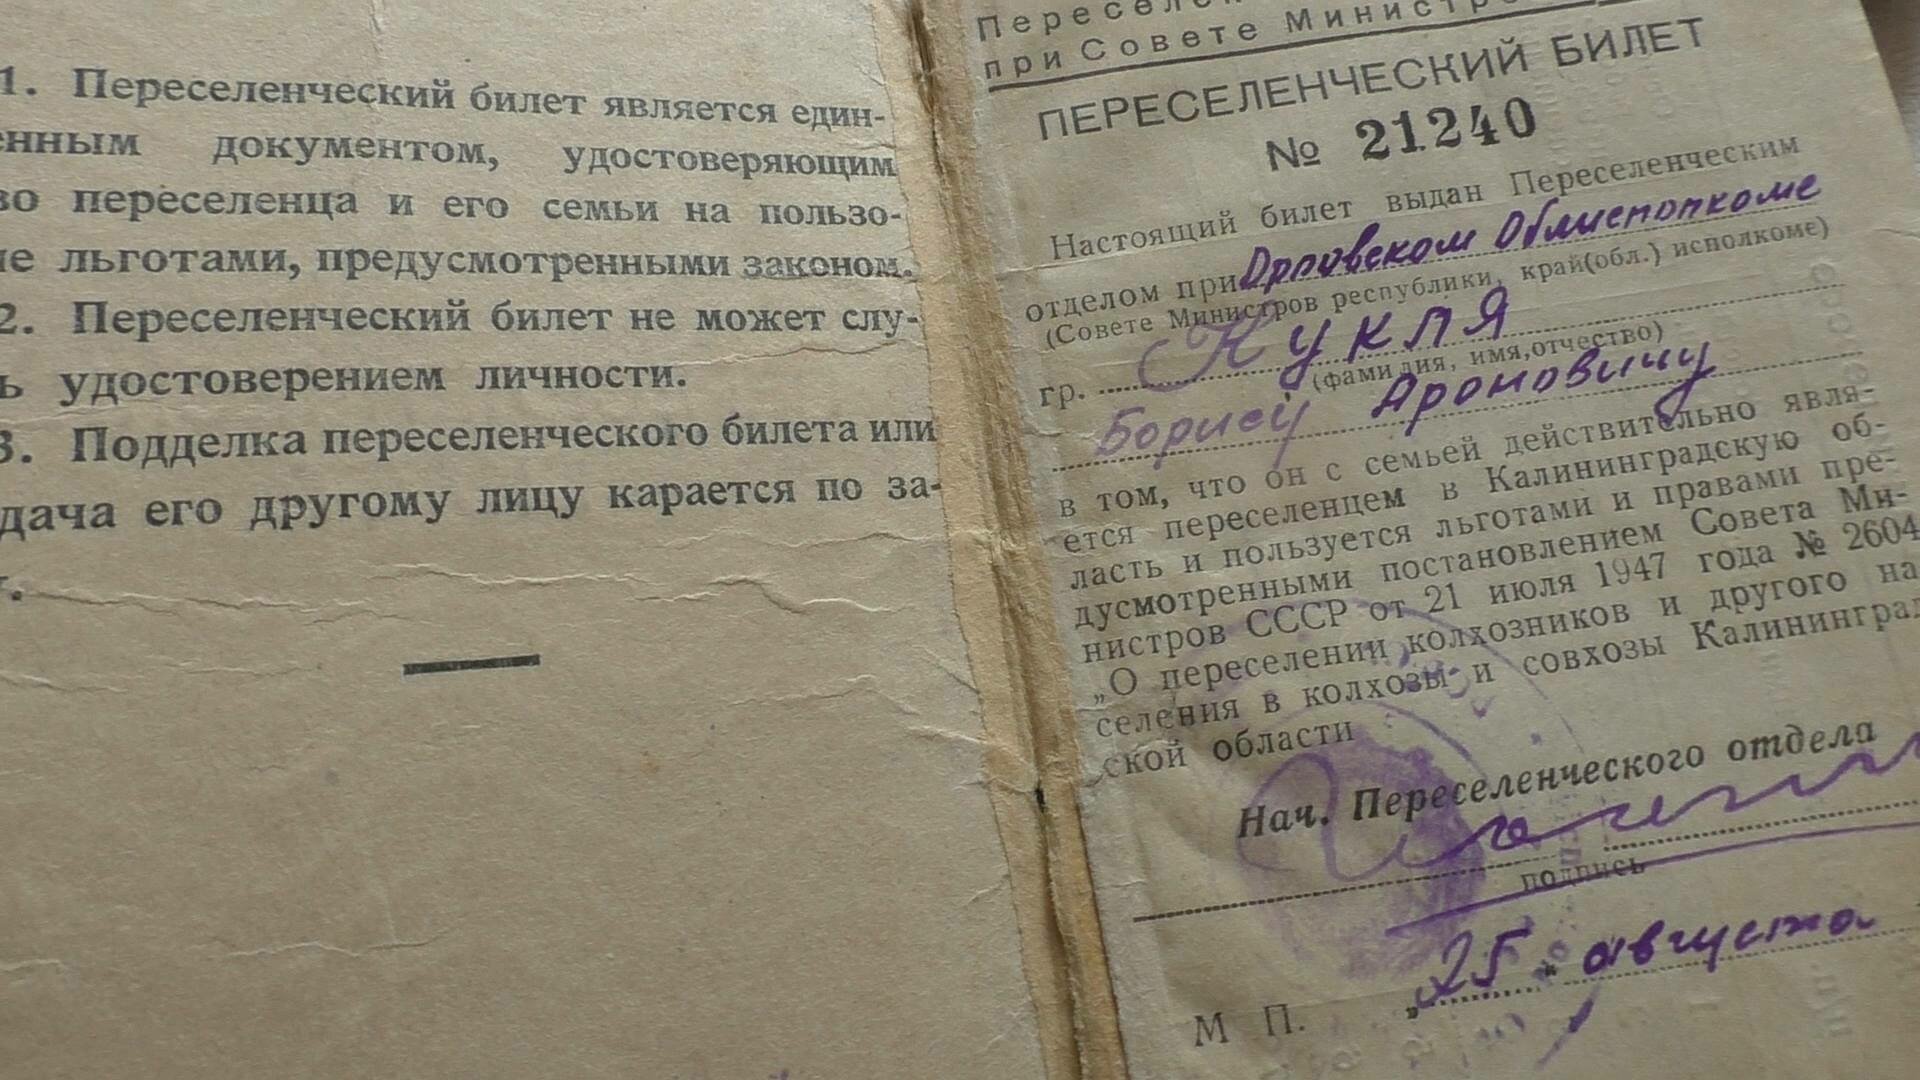 1. Переселенческий билет является един-
енным документом, удостоверяющим
во переселенца и его семьи на пользо-
ие льготами, предусмотренными законом.
2. Переселенческий билет не может слу-
ь удостоверением личности.
3. Подделка переселенческого билета или
дача его другому лицу карается по за-
г.
Пересел
при Совете Министр
ПЕРЕСЕЛЕНЧЕСКИЙ БИЛЕТ
№ 21240
Настоящий билет выдан Переселенческим
отделом при Орловском Облисполкоме
(Совете Министров республики, край(обл.) исполкоме)
гр. Кукля
(фамилия, имя, отчество)
Борису Ароновичу
в том, что он с семьей действительно явля-
ется переселенцем в Калининградскую об-
ласть и пользуется льготами и правами пре-
дусмотренными постановлением Совета Ми-
нистров СССР от 21 июля 1947 года № 2604
„О переселении колхозников и другого на
селения в колхозы и совхозы Калининград
ской области
Нач. Переселенческого отдела
подпись
М П. „25" августа